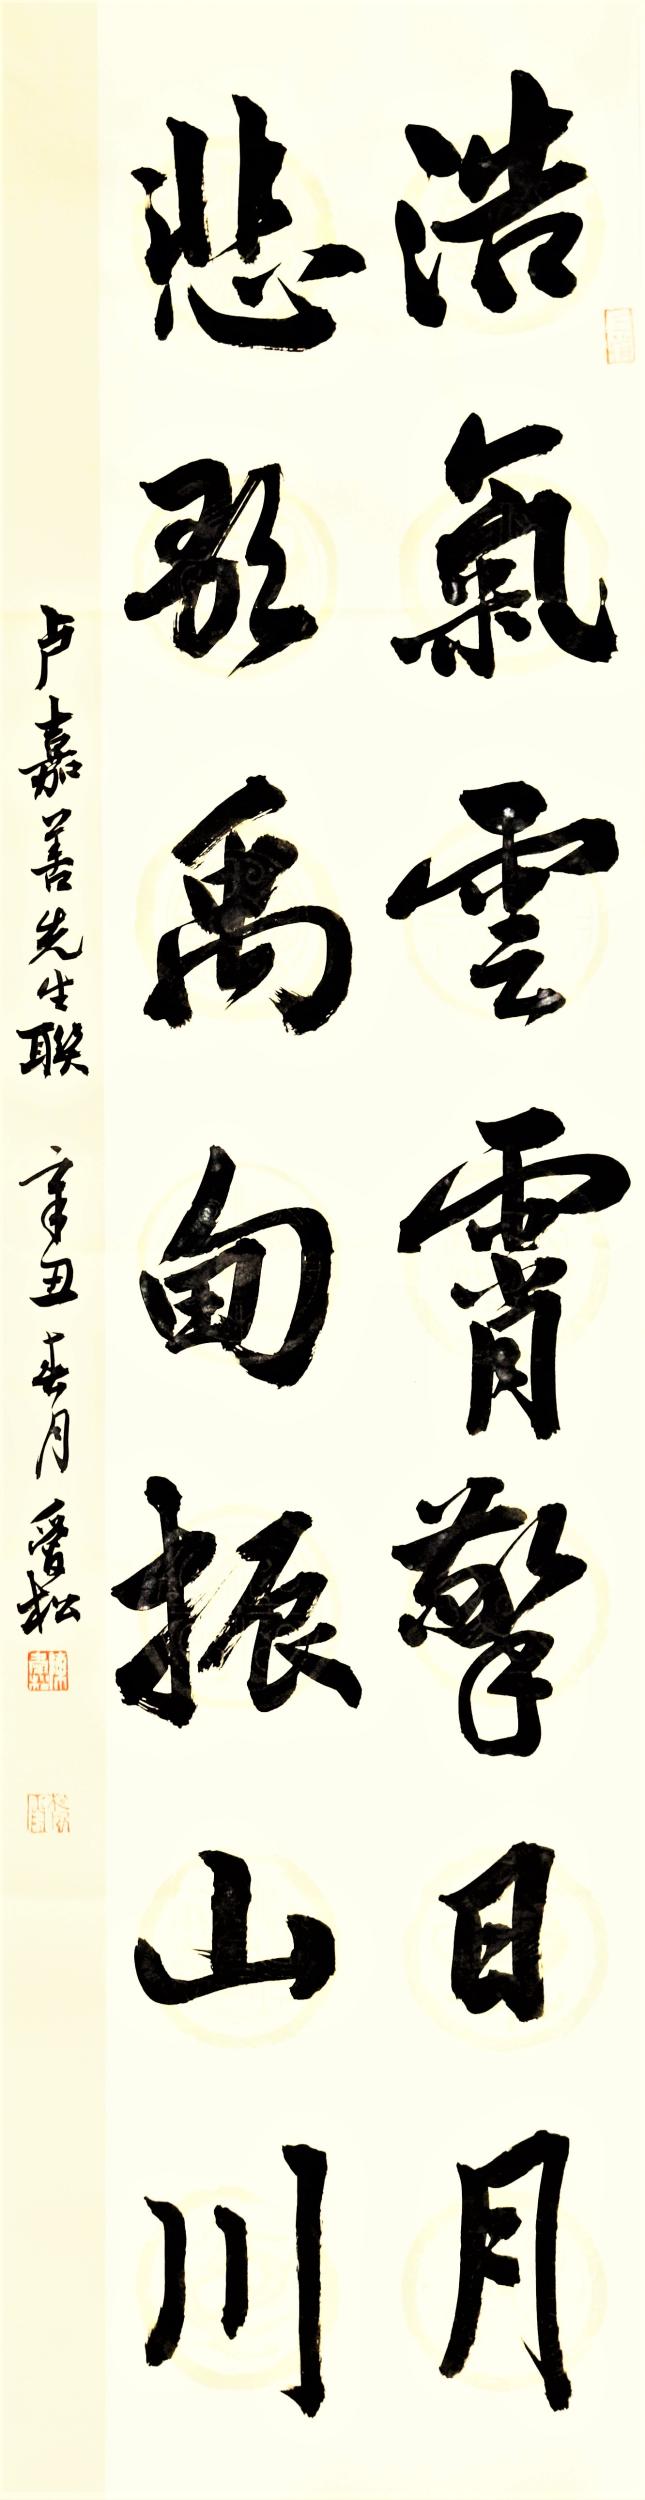 浩氣雲霄擎日月
悲歌禹甸振山川
卢嘉善先生联 辛丑春月 愛松